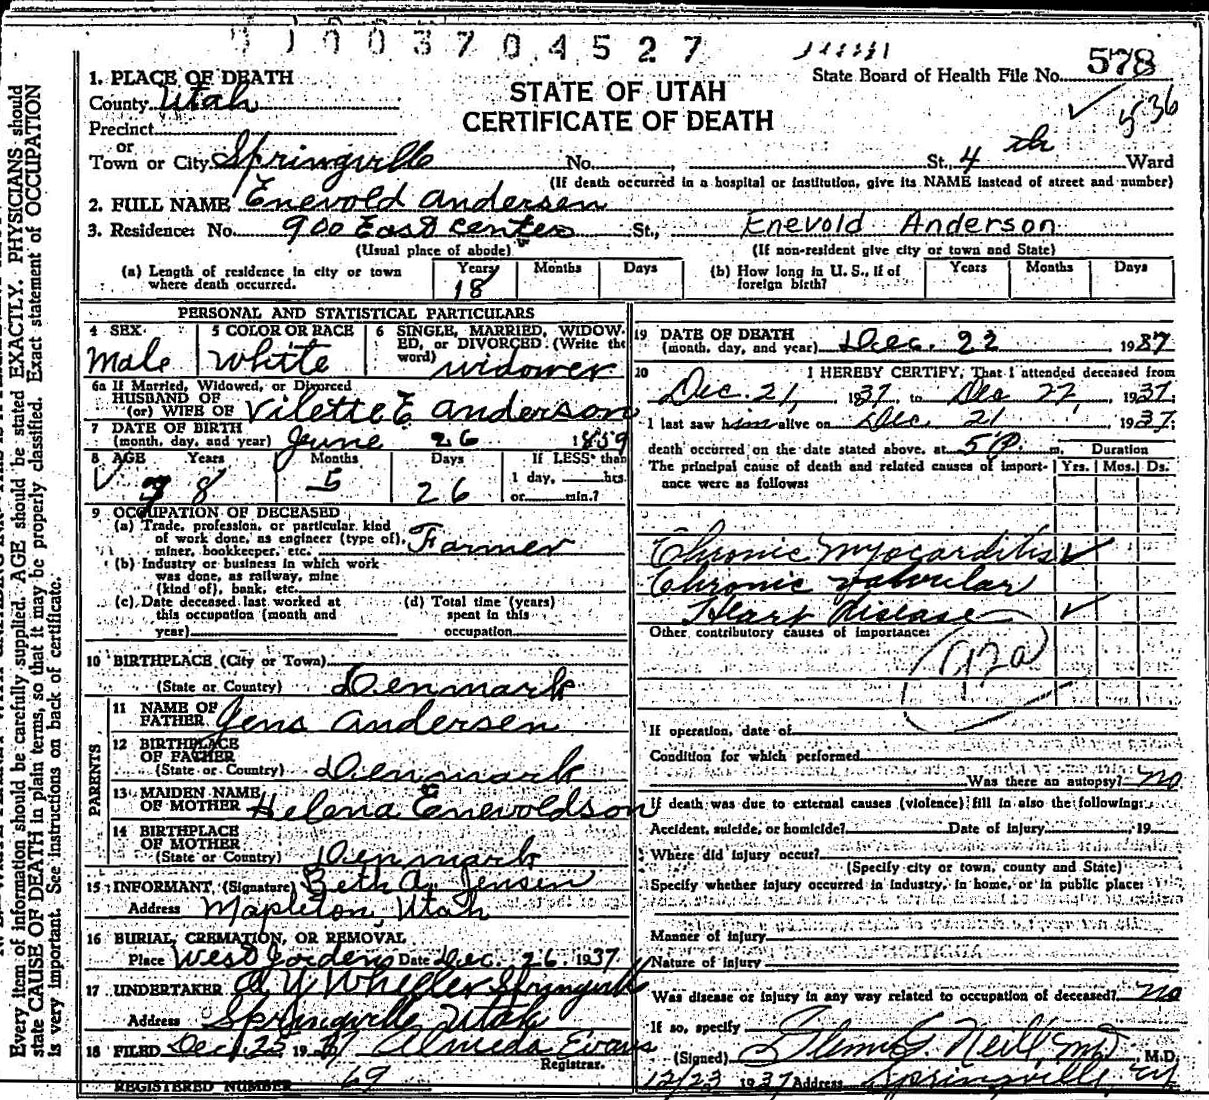 0 1 0 0 3 7 0 4 5 2 7
State Board of Health File No. 578
1. PLACE OF DEATH
STATE OF UTAH
CERTIFICATE OF DEATH
County Utah
536
Precinct
or
Town or City Springville No. St. 4 th Ward
(If death occurred in a hospital or institution, give its NAME instead of street and number)
2. FULL NAME Enevold Andersen
3. Residence: No. 900 East Center St., Enevold Anderson
(Usual place of abode) (If non-resident give city or town and State)
(a) Length of residence in city or town where death occurred. Years 18 Months Days (b) How long in U. S., if of foreign birth? Years Months Days
PERSONAL AND STATISTICAL PARTICULARS
4 SEX Male
5 COLOR OR RACE White
6 SINGLE, MARRIED, WIDOWED, or DIVORCED (Write the word) widower
6a If Married, Widowed, or Divorced
HUSBAND OF
(or) WIFE OF Vilette E Anderson
7 DATE OF BIRTH
(month, day, and year) June 26 1859
8 AGE Years 78 Months 5 Days 26 If LESS than 1 day, hrs. or min.?
9 OCCUPATION OF DECEASED
(a) Trade, profession, or particular kind
of work done, as engineer (type of),
miner, bookkeeper, etc. Farmer
(b) Industry or business in which work
was done, as railway, mine
(kind of), bank, etc.
(c) Date deceased last worked at this occupation (month and year)
(d) Total time (years) spent in this occupation
10 BIRTHPLACE (City or Town)
(State or Country) Denmark
PARENTS
11 NAME OF FATHER Jens Andersen
12 BIRTHPLACE OF FATHER
(State or Country) Denmark
13 MAIDEN NAME OF MOTHER Helena Enevoldson
14 BIRTHPLACE OF MOTHER
(State or Country) Denmark
15 INFORMANT (Signature) Beth A. Jensen
Address Mapleton, Utah
16 BURIAL, CREMATION, OR REMOVAL
Place West Jordan Date Dec. 26. 1937
17 UNDERTAKER A. Y. Wheeler Springville
Address Springville Utah
18 FILED Dec 25 1937 Almeda Evans
Registrar.
REGISTERED NUMBER 69
19 DATE OF DEATH
(month, day, and year) Dec. 22 1937
20 I HEREBY CERTIFY, That I attended deceased from
Dec. 21, 1937, to Dec 22, 1937.
I last saw him alive on Dec. 21 1937;
death occurred on the date stated above, at 5 P. m. Duration
The principal cause of death and related causes of importance were as follows: Yrs. Mos. Ds.
Chronic Myocarditis
Chronic valvular
Heart disease
Other contributory causes of importance:
92a
If operation, date of
Condition for which performed
Was there an autopsy? no
If death was due to external causes (violence) fill in also the following:
Accident, suicide, or homicide? Date of injury 19
Where did injury occur?
(Specify city or town, county and State)
Specify whether injury occurred in industry, in home, or in public place:
Manner of injury
Nature of injury
Was disease or injury in any way related to occupation of deceased? no
If so, specify
(Signed) Glenn G. Neill, MD, M.D.
12/23 1937 Address Springville, Ut
Every item of information should be carefully supplied. AGE should be stated EXACTLY. PHYSICIANS should
state CAUSE OF DEATH in plain terms, so that it may be properly classified. Exact statement of OCCUPATION
is very important. See instructions on back of certificate.